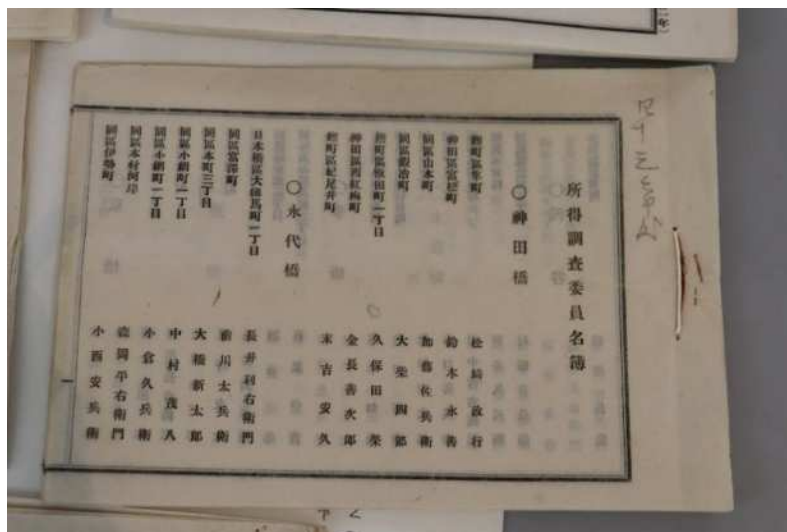 所得調査委員名簿
○神田橋
麹町區隼町 松崎政行
神田區富松町 鈴木永善
同區山本町 加藤佐兵衛
同區鍛冶町 大柴四郎
麹町區飯田町一丁目 久保田榮
神田區西紅梅町 金長善次郎
麹町區紀尾井町 末吉安久
○永代橋
日本橋區大傳馬町一丁目 長井利右衛門
同區富澤町 前川太兵衛
同區本町三丁目 大橋新太郎
同區小網町一丁目 中村茂八
同區小網町一丁目 小倉久兵衛
同區本材木河岸 森岡平右衛門
同區伊勢町 小西安兵衛